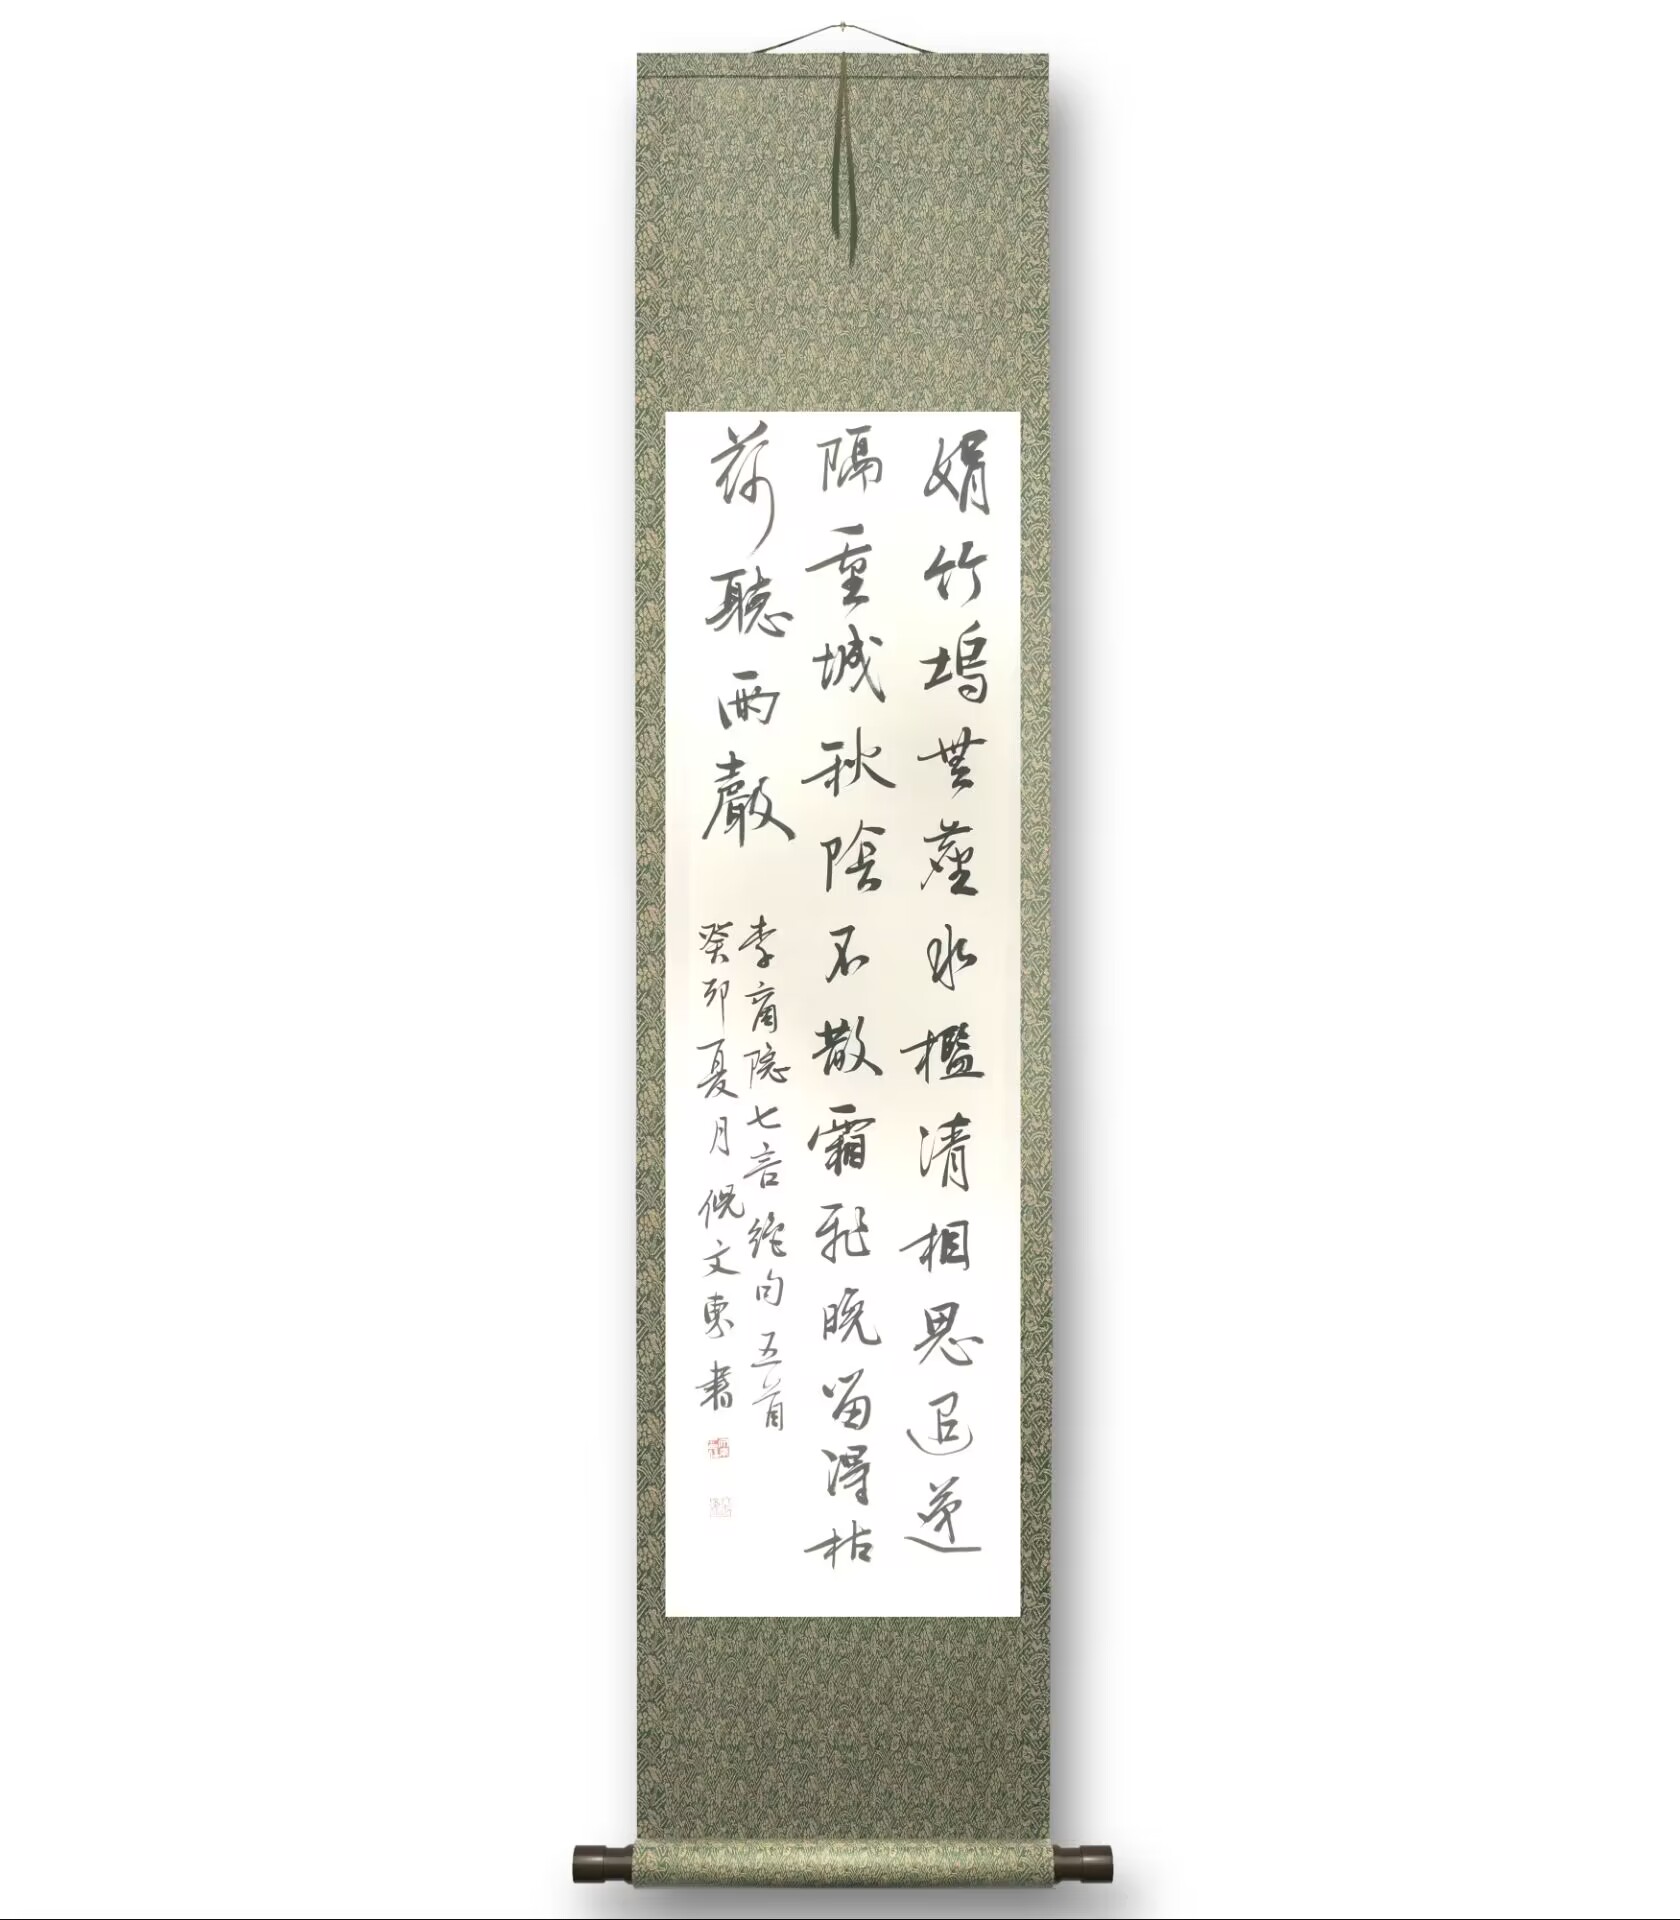 娟竹塢無塵水檻清相思迢遞
隔重城秋陰不散霜飛晚留得枯
荷聽雨聲
李商隐七言絕句五首
癸卯夏月倪文東書